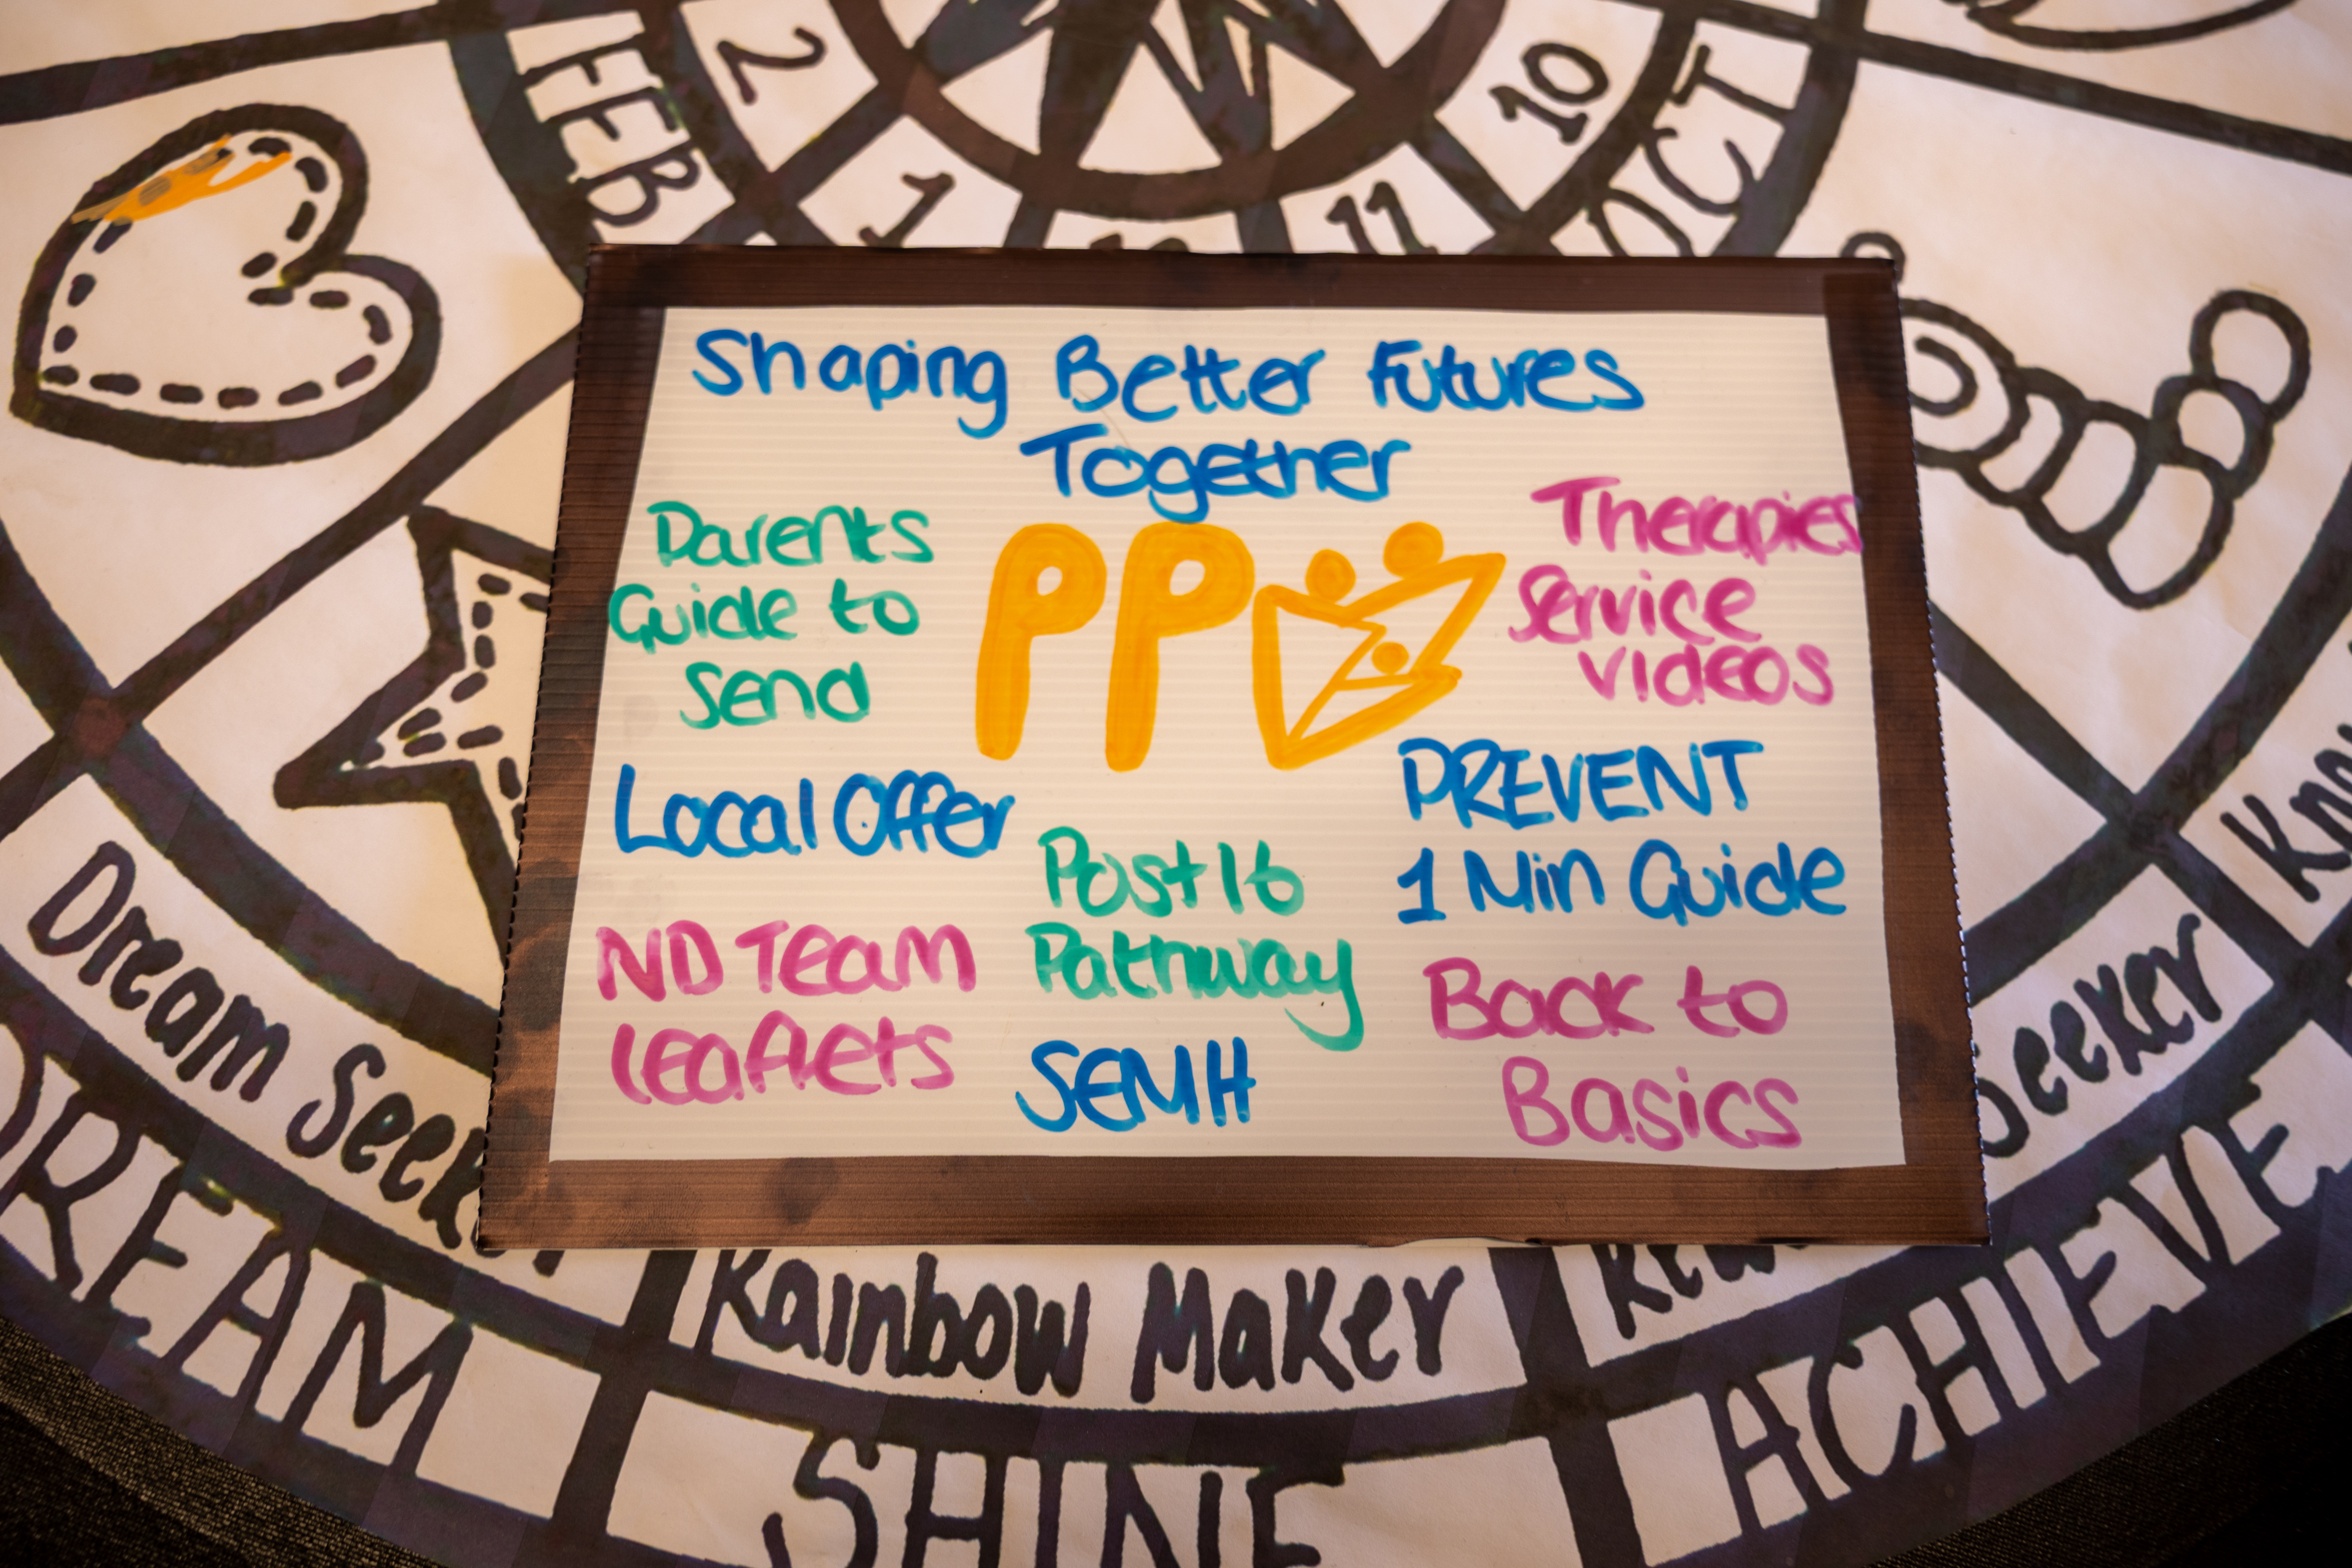 FEB
2
1
11
10
OCT
Shaping Better Futures
Together
Parents
Guide to
Send
PP
Therapies
Service
Videos
Local Offer
PREVENT
1 Min Guide
Post 16
Pathway
ND Team
Leaflets
SEMH
Back to
Basics
Dream Seeker
Rainbow Maker
Seeker
DREAM
SHINE
ACHIEVE